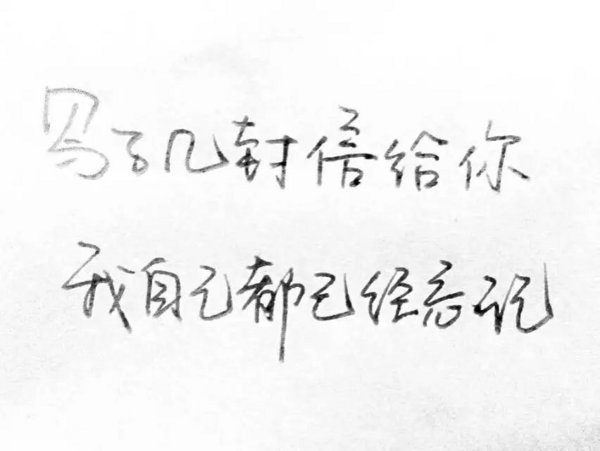 写了几封信给你
我自己都已经忘记